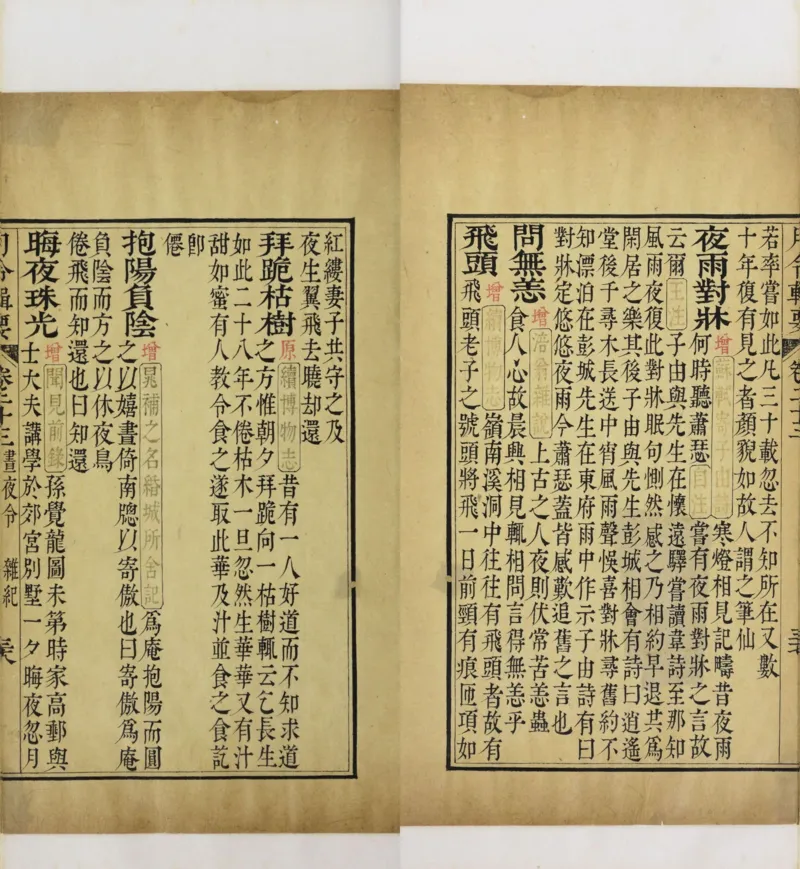 月令輯要 卷二十三
若率嘗如此凡三十載忽去不知所在又數
十年復有見之者顏貌如故人謂之筆仙
夜雨對牀 增 子由 寒燈相見記疇昔夜雨
何時聽蕭瑟 自注 嘗有夜雨對牀之言故
云爾 王注 子由與先生在懷遠驛嘗讀韋詩至那知
風雨夜復此對牀眠句惻然感之乃相約早退共為
閑居之樂其後子由與先生彭城相會有詩曰逍遙
堂後千尋木長送中宵風雨聲悞喜對牀尋舊約不
知漂泊在彭城先生在東府雨中作示子由詩有曰
對牀定悠悠夜雨今蕭瑟蓋皆感歎追舊之言也
問無恙 增 涪翁雜說 上古之人夜則伏常苦恙蟲
食人心故晨興相見輒相問言得無恙乎
飛頭 增 博物志 嶺南溪洞中往往有飛頭者故有
飛頭老子之號頭將飛一日前頸有痕匝項如
紅縷妻子共守之及
夜生翼飛去曉却還
拜跪枯樹 原 續博物志 昔有一人好道而不知求道
之方惟朝夕拜跪向一枯樹輒云乞長生
如此二十八年不倦枯木一旦忽然生華華又有汁
甜如蜜有人教令食之遂取此華及汁並食之食訖
卽
僊
抱陽負陰 增 晁補之名緡城所舍記 為庵抱陽而圓
之以嬉晝倚南牕以寄傲也曰寄傲為庵
負陰而方之以休夜鳥
倦飛而知還也曰知還
晦夜珠光 增 聞見前錄 孫覺龍圖未第時家高郵與
士大夫講學於郊宮別墅一夕晦夜忽月
月令輯要 卷二十三 晝夜令 雜紀